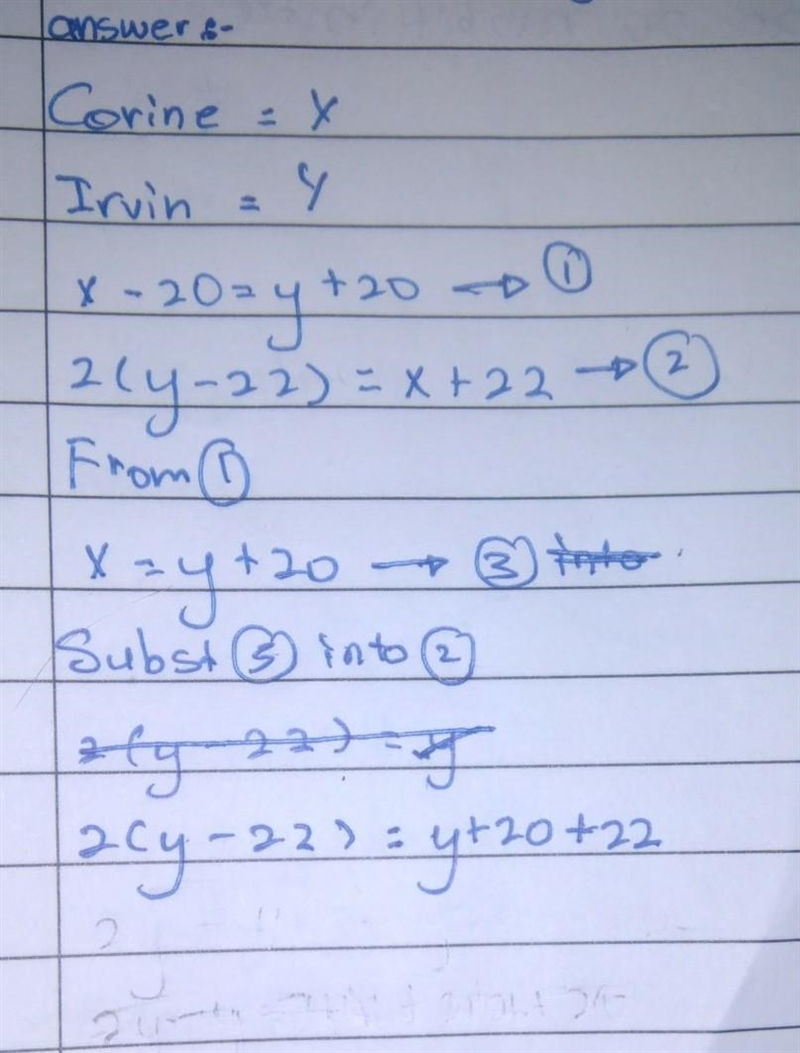 answer:-
Corine = x
Irvin = y
x - 20 = y + 20 → ①
2(y - 22) = x + 22 → ②
From ①
x = y + 20 → ③ into
Subst ③ into ②
2(y - 22) = y
2(y - 22) = y + 20 + 22